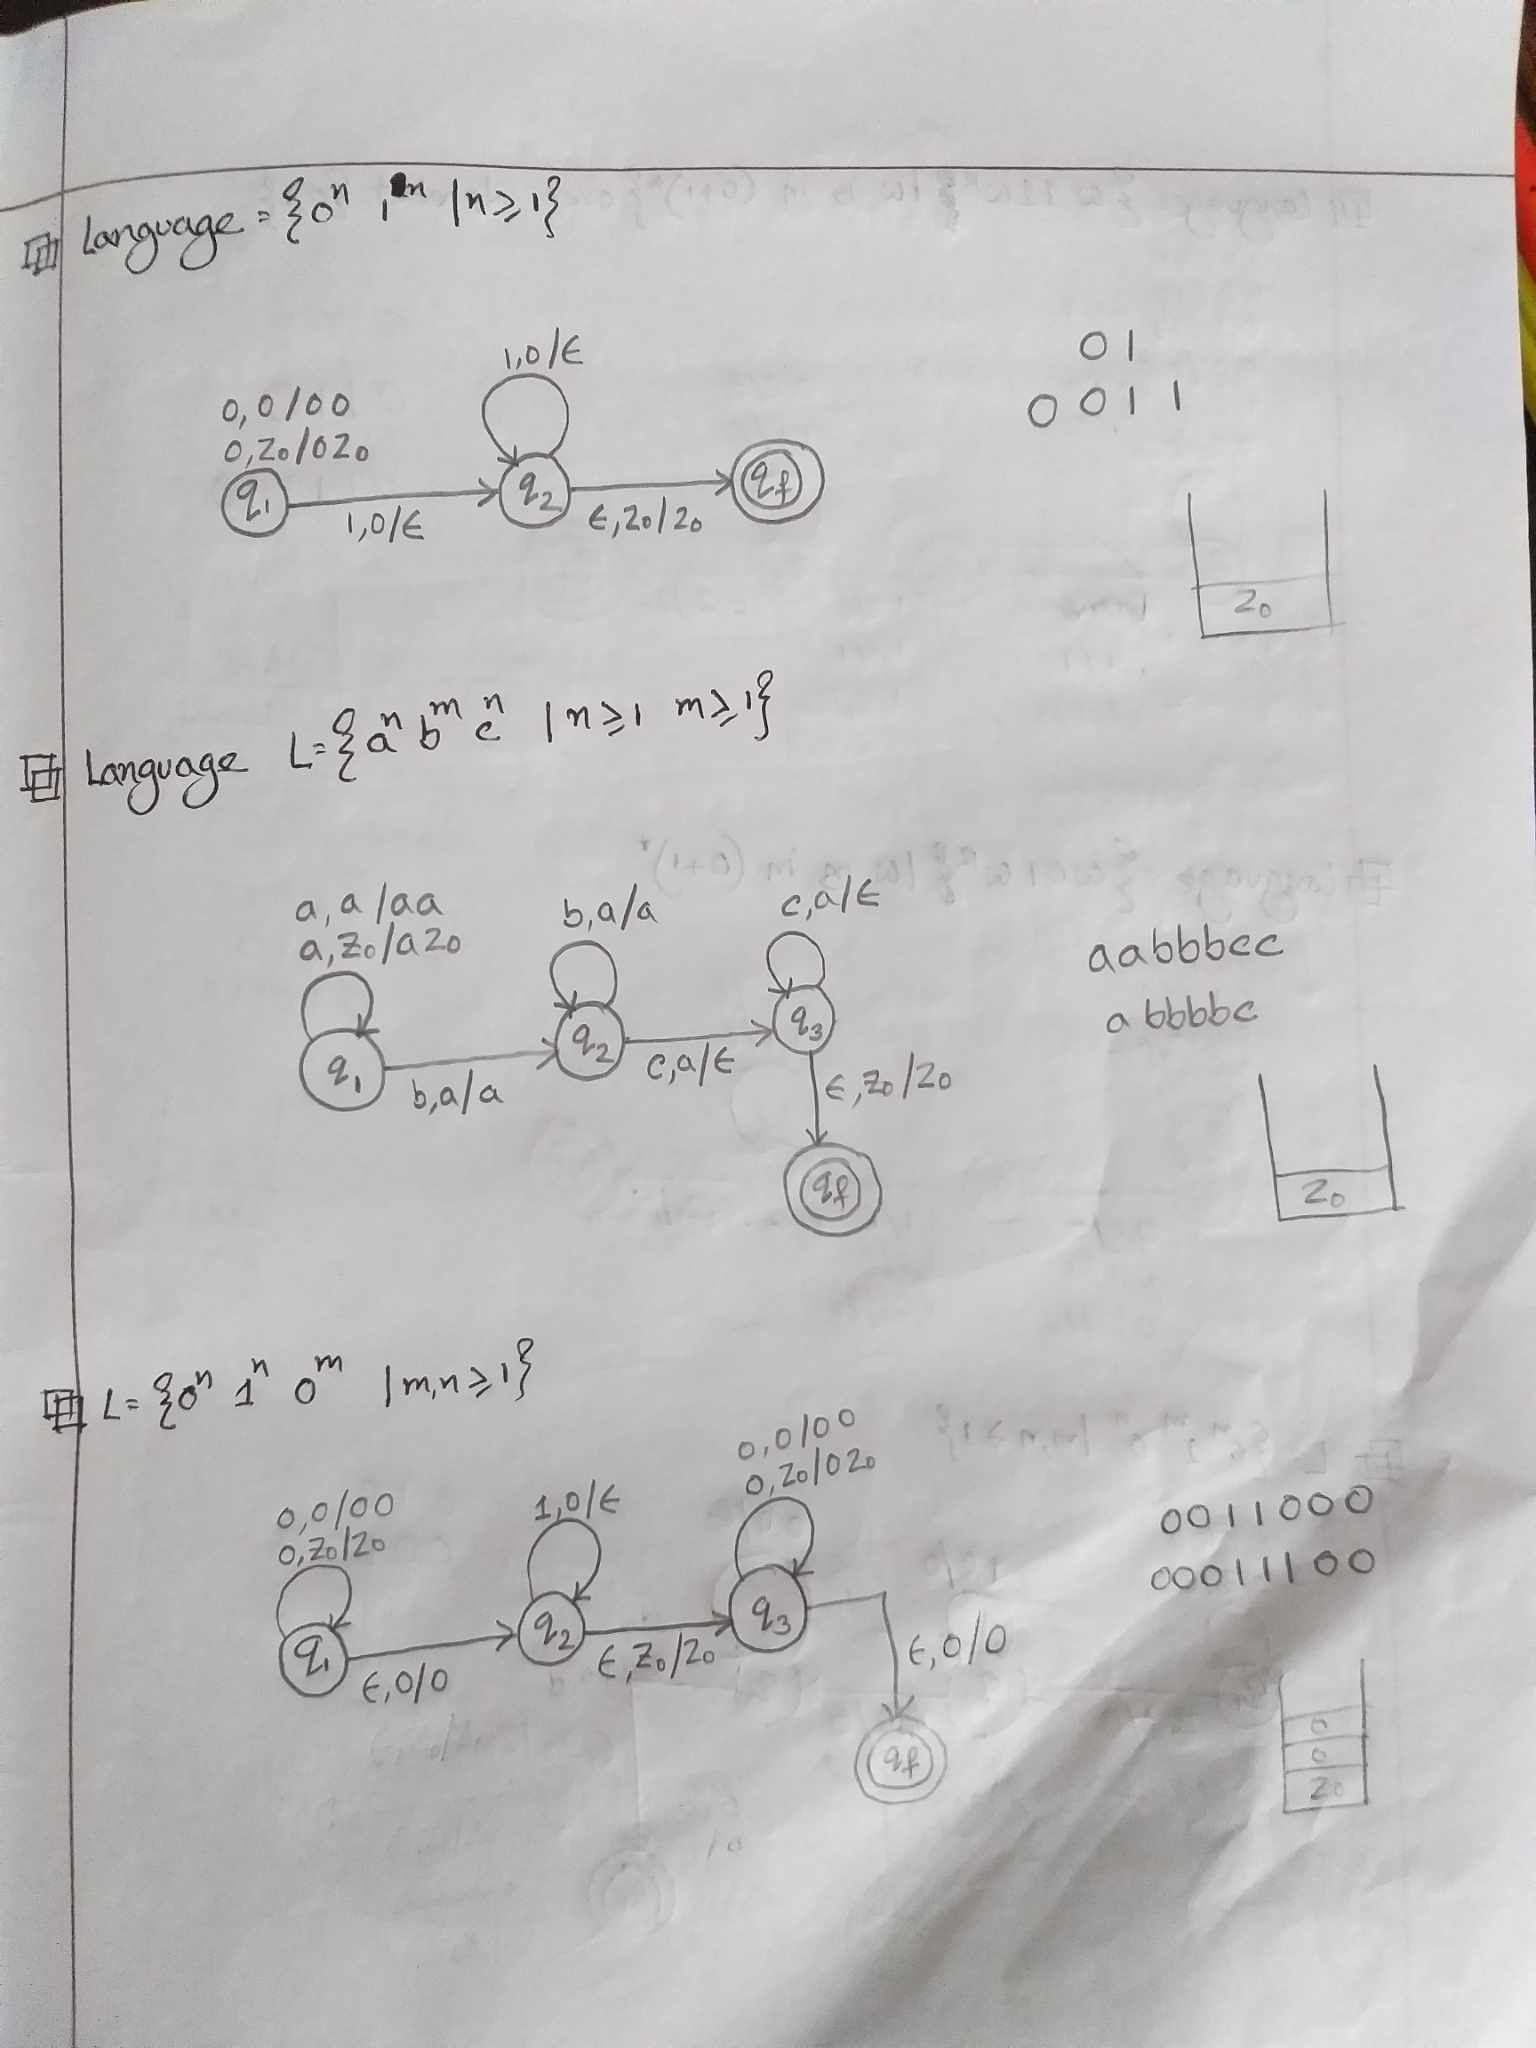 Language = {0ⁿ 1ⁿ | n ≥ 1}
1,0/ϵ
0,0/00
0,Z₀/0Z₀
q₁
1,0/ϵ
q₂
ϵ,Z₀/Z₀
qf
0 1
0 0 1 1
Z₀
Language L = {aⁿ bᵐ cⁿ | n ≥ 1 m ≥ 1}
a,a/aa
a,Z₀/aZ₀
b,a/a
c,a/ϵ
q₁
b,a/a
q₂
c,a/ϵ
q₃
ϵ,Z₀/Z₀
qf
aabbbcc
abbbbc
Z₀
L = {0ⁿ 1ⁿ 0ᵐ | m,n ≥ 1}
0,0/00
0,Z₀/Z₀
1,0/ϵ
0,0/00
0,Z₀/0Z₀
q₁
ϵ,0/0
q₂
ϵ,Z₀/Z₀
q₃
ϵ,0/0
qf
0011000
00011100
0
0
Z₀